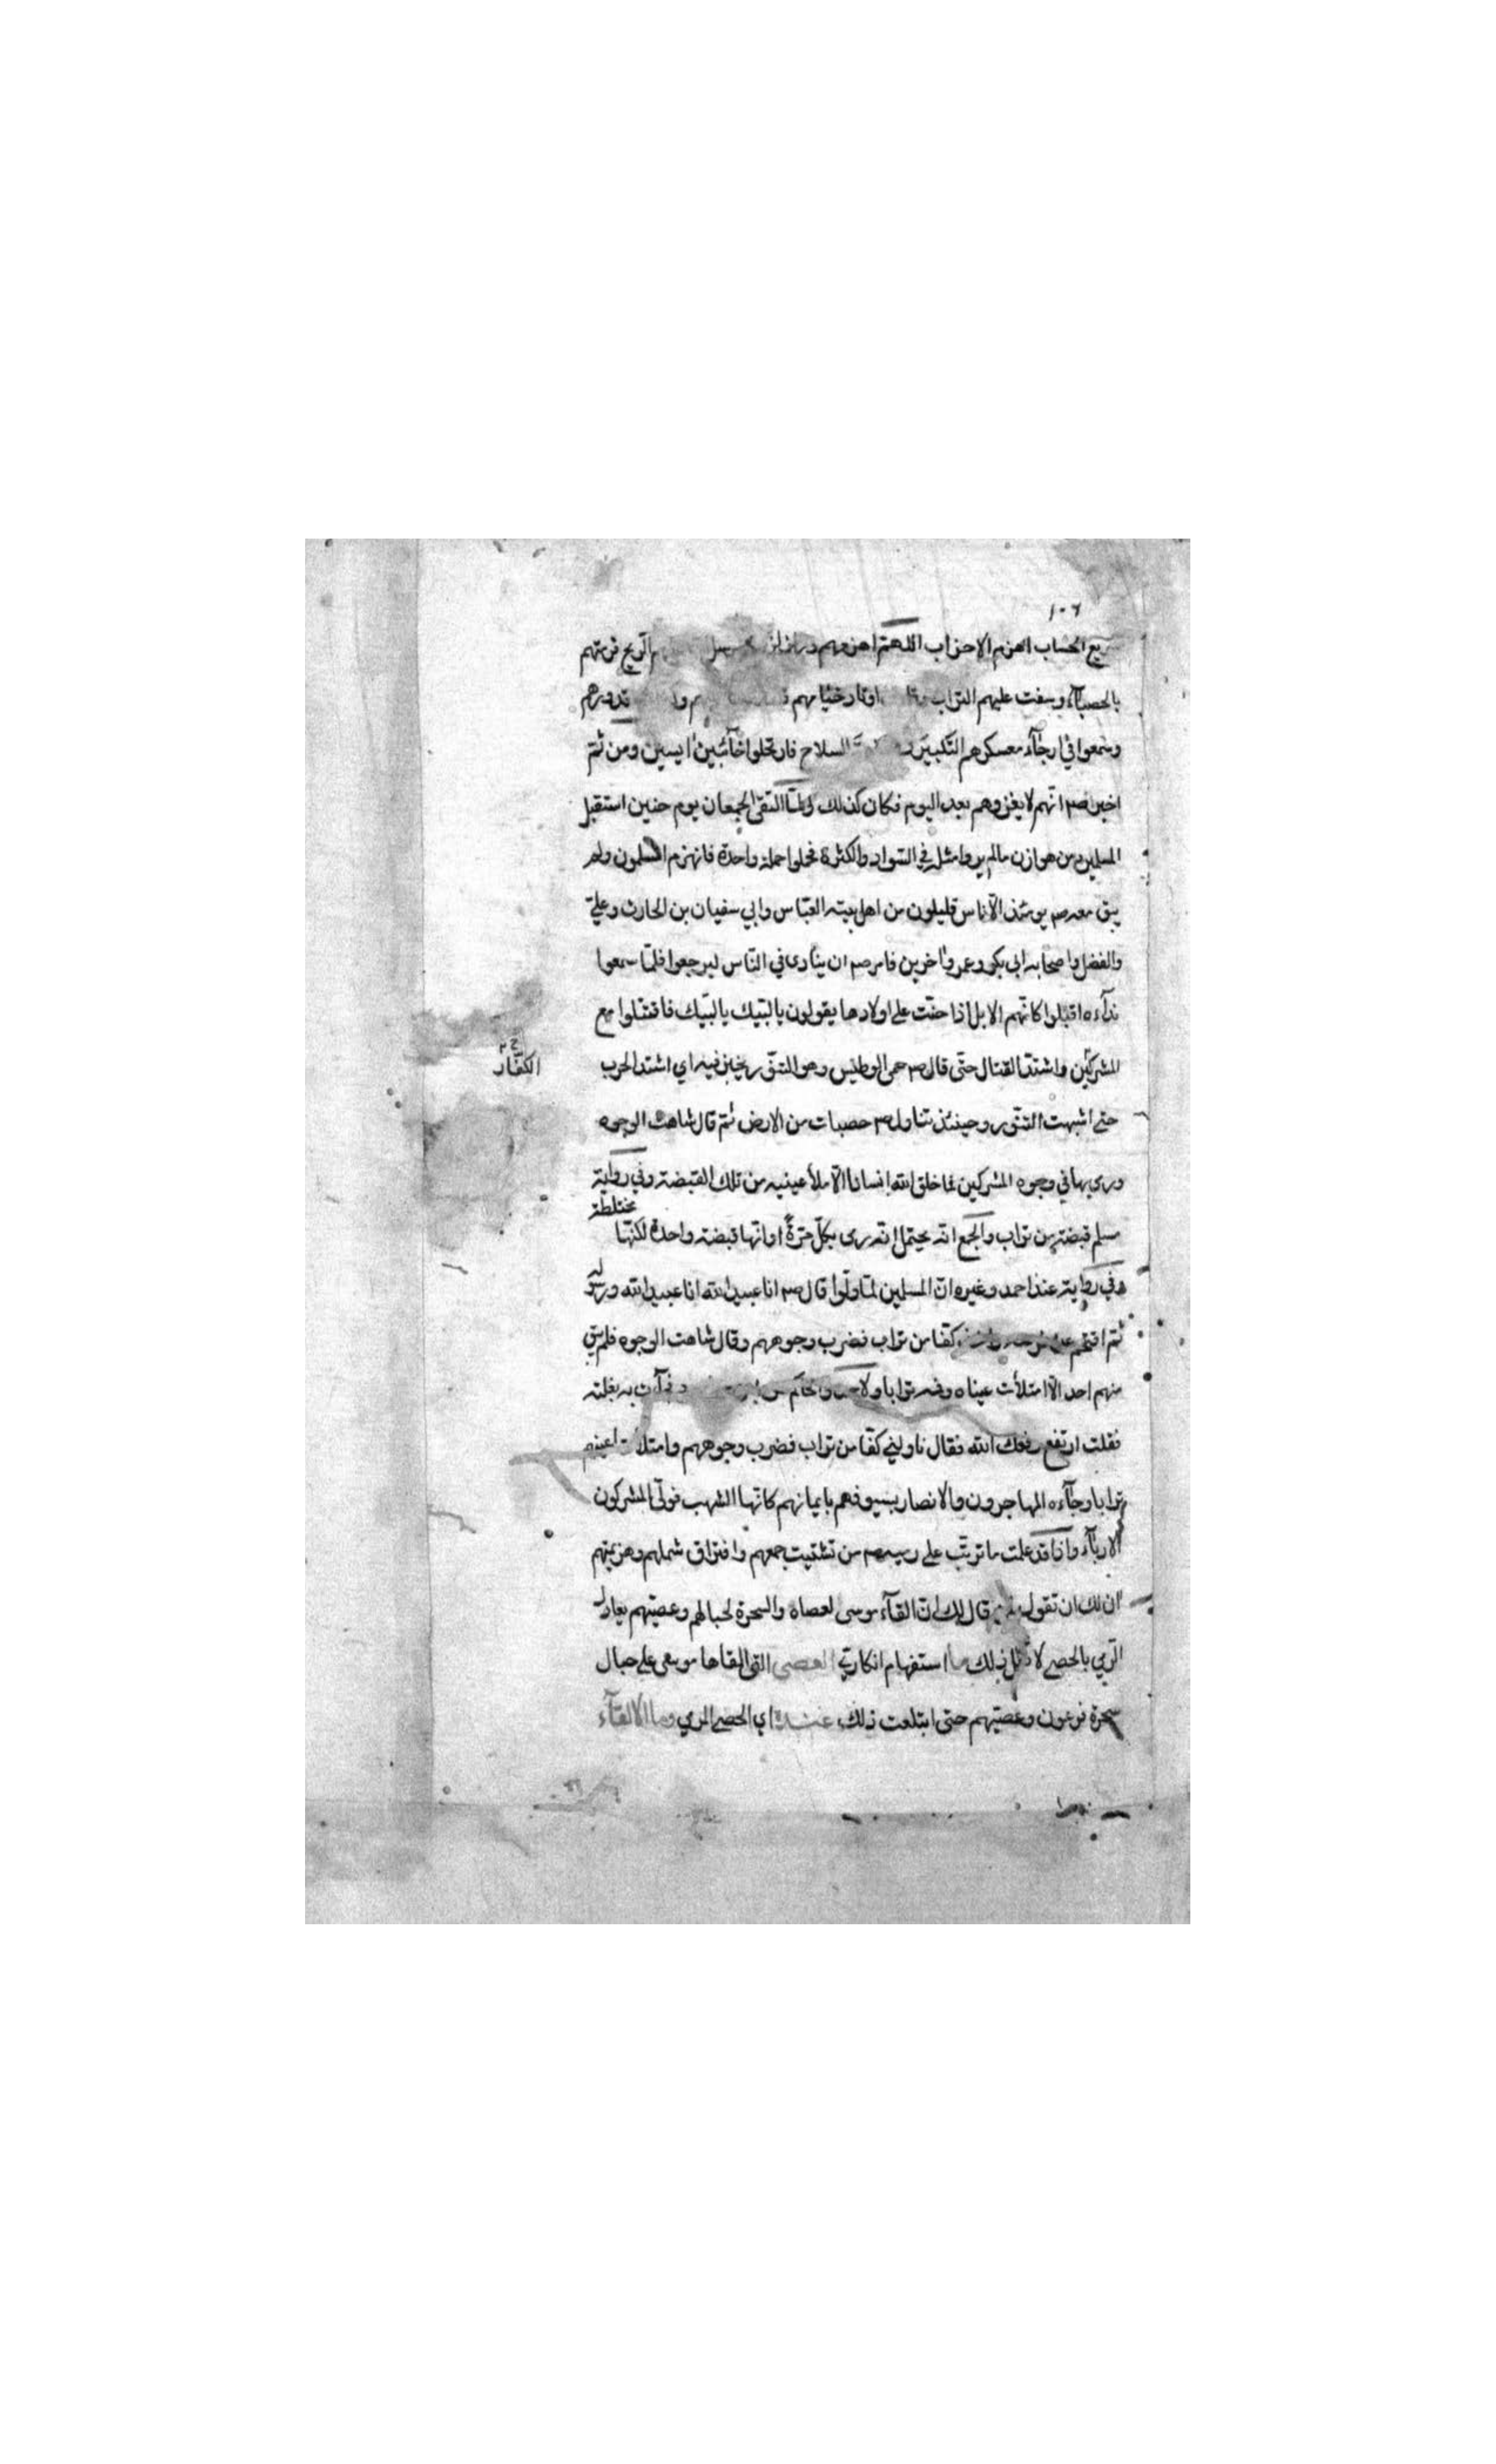 ١٠٦
سريع الحساب اهزم الاحزاب اللهم اهزمهم وزلزلهم الريح فرمتهم
بالحصباء وسفت عليهم التراب اوتاد خيامهم قدورهم
وسمعوا في ارجاء معسكرهم التكبير السلاح فارتحلوا خائبين ايسين ومن ثم
اخبر صم انهم لا يغزوهم بعد اليوم فكان كذلك ولما التقى الجمعان يوم حنين استقبل
المسلمين من هوازن مالم يروا مثله في السواد والكثرة فحملوا حملة واحدة فانهزم المسلمون ولم
يبق معه صم يومئذ الا ناس قليلون من اهل بيته العباس وابي سفيان بن الحارث وعلي
والفضل واصحابه ابي بكر وعمر واخرين فامر صم ان ينادى في الناس ليرجعوا فلما سمعوا
نداءه اقبلوا كانهم الابل اذا حنت على اولادها يقولون يا لبيك يا لبيك فاقتتلوا مع
المشركين واشتد القتال حتى قال صم حمى الوطيس وهو التنور يخبز فيه اي اشتد الحرب
الكفار
حتى اشبهت التنور وحينئذ تناول صم حصبات من الارض ثم قال شاهت الوجوه
ورمى بها في وجوه المشركين فما خلق الله انسانا الا ملأ عينيه من تلك القبضة وفي رواية
مسلم قبضة من تراب والجمع انه يحتمل انه رمى بكل مرة او انها قبضة واحدة لكنها مختلطة
وفي رواية عند احمد وغيره ان المسلمين لما ولوا قال صم انا عبد الله انا عبد الله ورسوله
ثم اقتحم عن فرسه واخذ كفا من تراب فضرب وجوههم وقال شاهت الوجوه فلم يبق
منهم احد الا امتلأت عيناه وفمه ترابا ولاحمد والحاكم به بغلته
فقلت ارتفع رفعك الله فقال ناولني كفا من تراب فضرب وجوههم وامتلات اعينهم
ترابا وجاءه المهاجرون والانصار بسيوفهم بايمانهم كانها الشهب فولى المشركون
الادبار واذا قد علمت ما ترتب على رميه صم من تشتيت جمعهم وافتراق شملهم وهزيمتهم
ان لك ان تقول قال لك ان القاء موسى لعصاه والسحرة لحبالهم وعصيهم يعادل
الرمي بالحصى لا تقل ذلك ما استفهام انكاري العصى التي القاها موسى على حبال
سحرة فرعون وعصيهم حتى ابتلعت ذلك عنده اي الحصى المرمي وما الالقاء